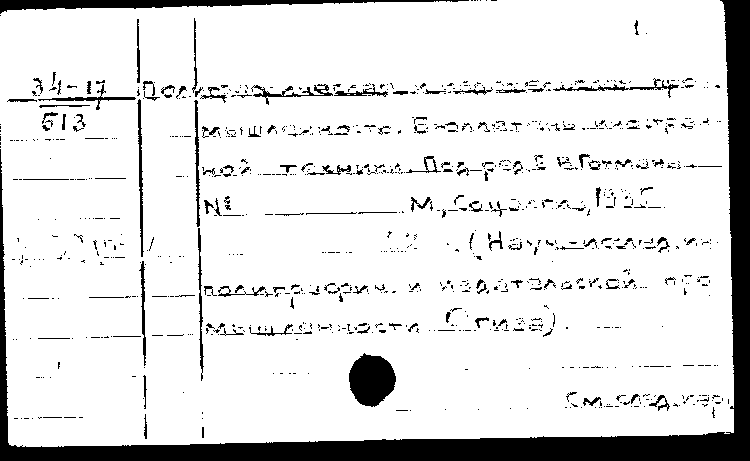 1.
34-17 Полиграфическая и издательская про-
513
мышленность. Бюллетень иностран-
ной техники. Под ред. Е. В. Гохмана.
№ М., Соцэкгиз, 1935
(Науч.-исслед. ин
полиграфич. и издательской про
мышленности Огиза).
См. след. кар.